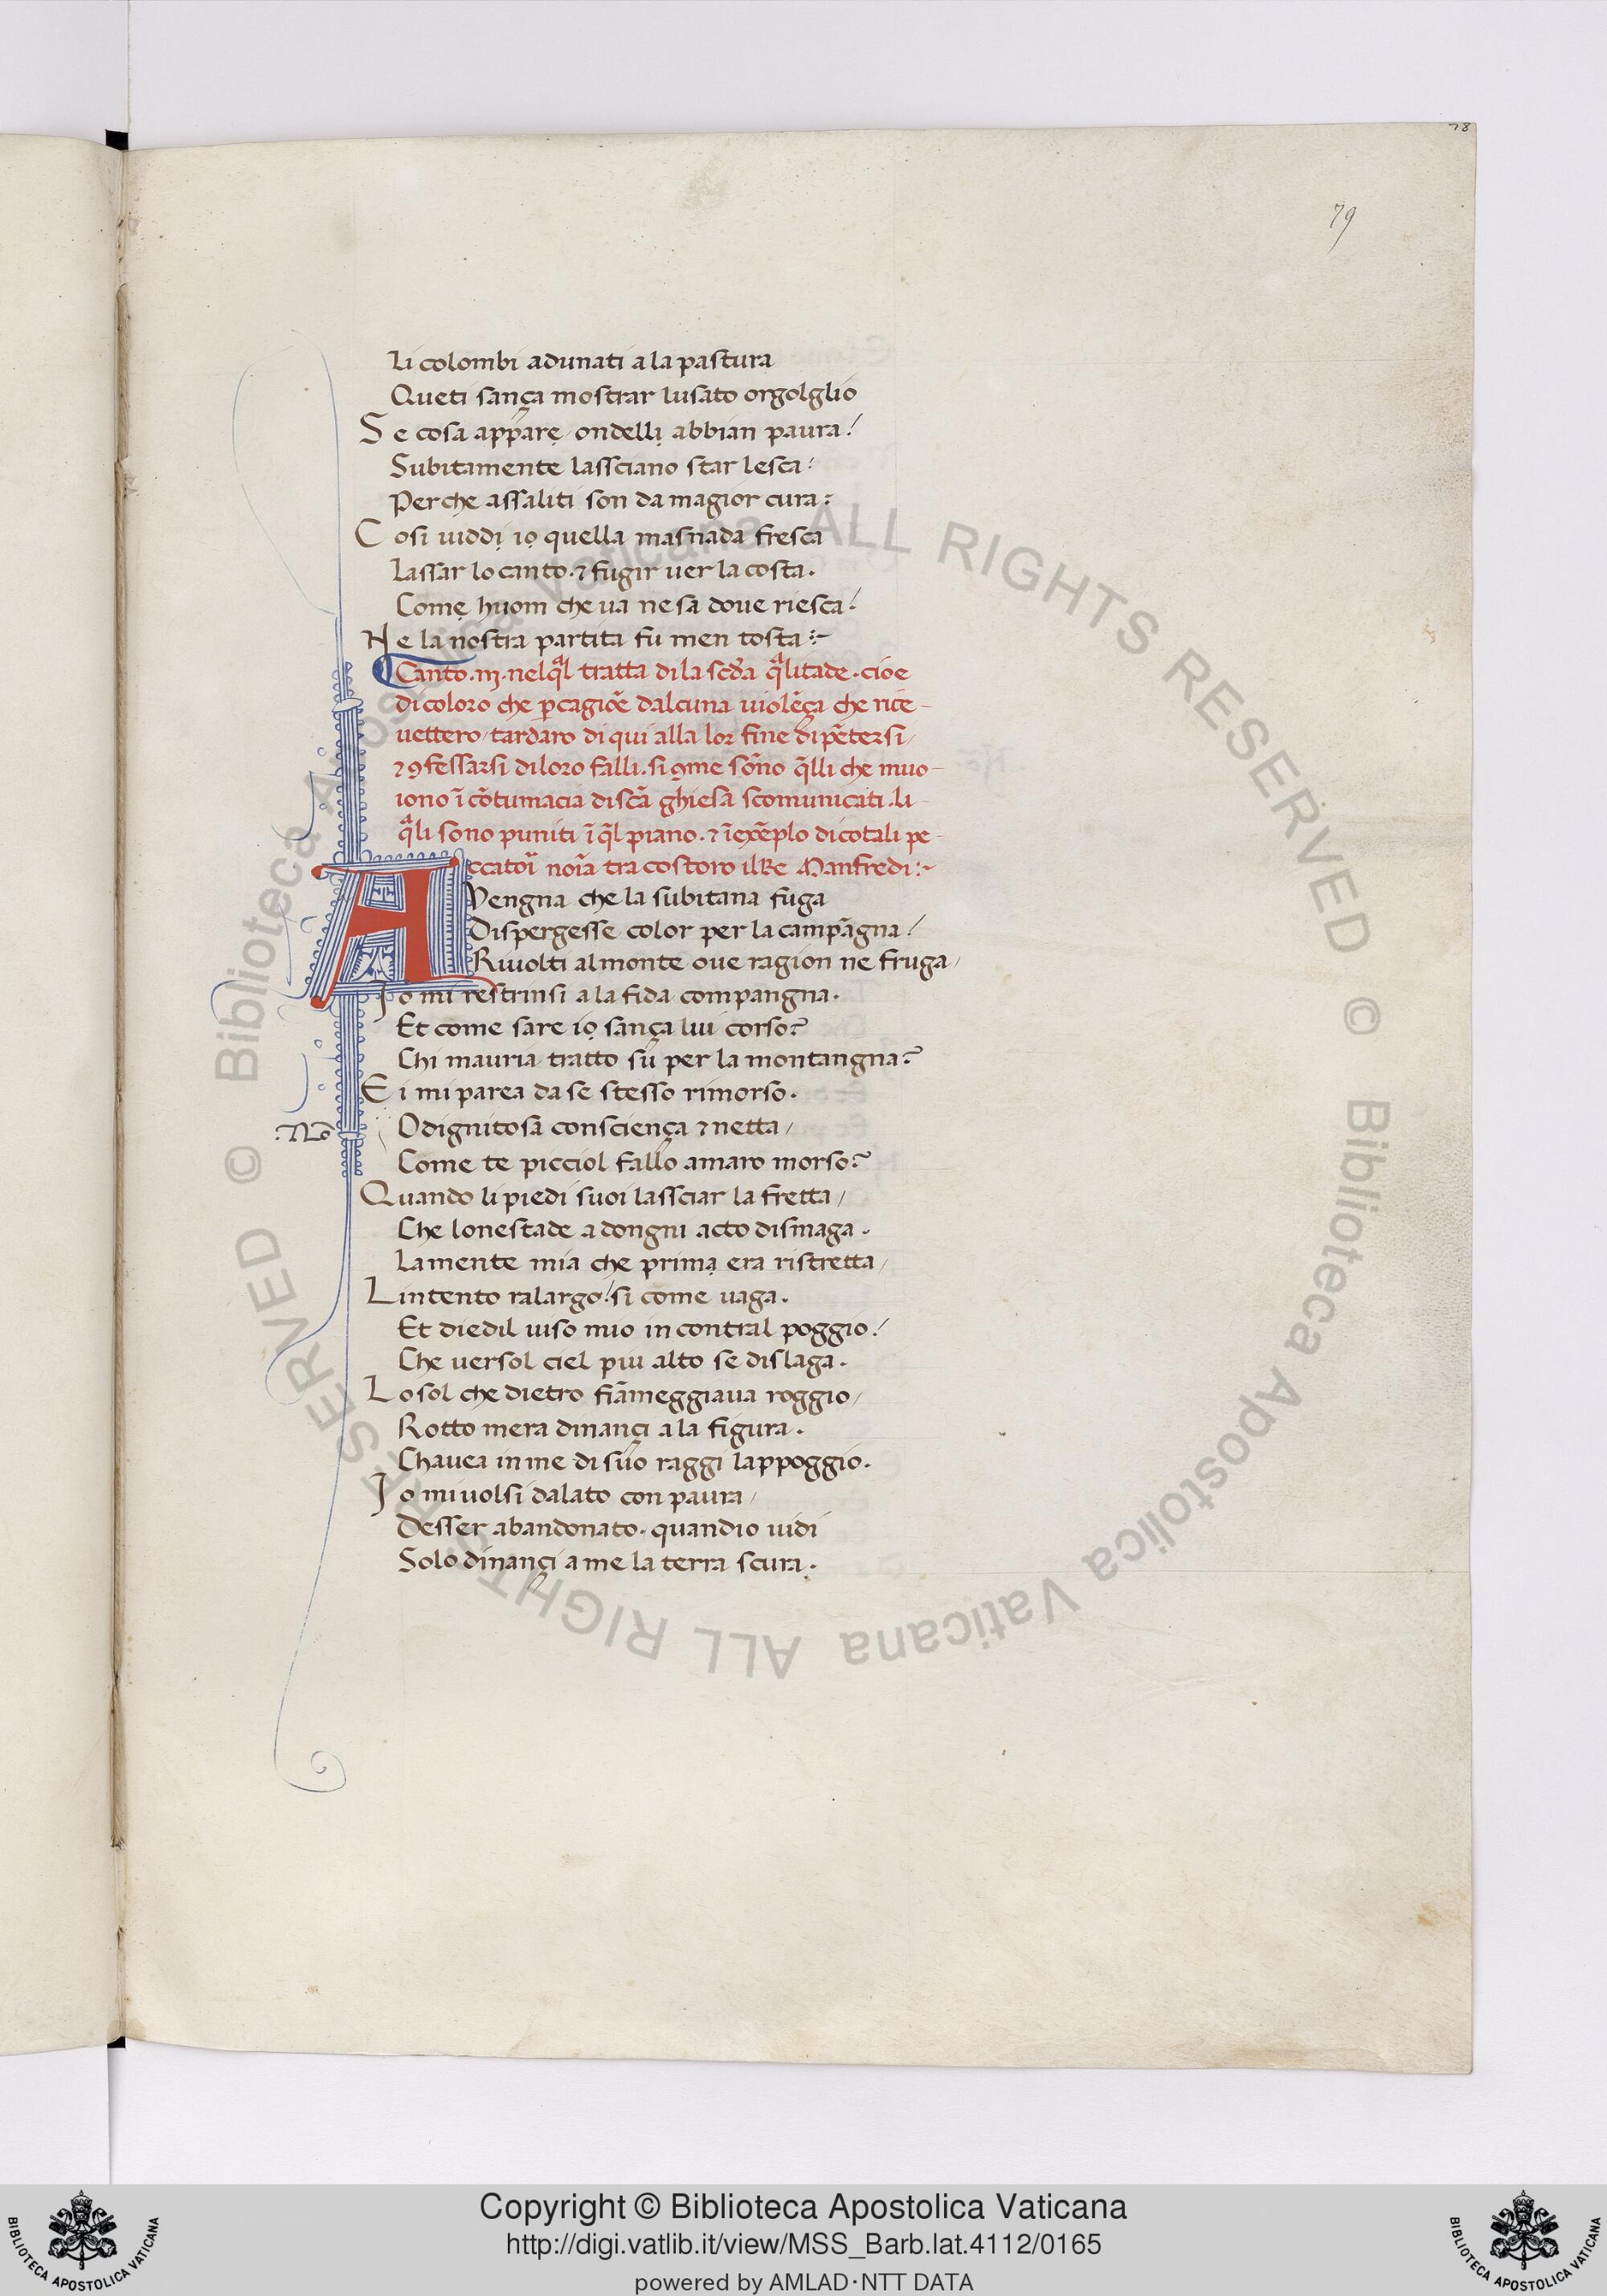 78
79
Li colombi adunati a la pastura
Queti sança mostrar lusato orgolglio
Se cosa appare / ondelli abbian paura!
Subitamente lassciano star lesca:
Perche assaliti son da magior cura:
Cosi uiddi io quella masnada fresca
Lassar lo canto · ⁊ fugir uer la costa.
Come huom che ua ne sa doue riesca!
Ne la nostra partita fu men tosta:~
Canto · iij · nel qͣl tratta di la scd̕a qͣlitade · cioe
di coloro che ꝑ cagiōe dalcuna uiolēça che rice-
uettero / tardaro di qui alla lor fine di pētersi /
⁊ ꝯfessarsi di loro falli · si ꝯme sōno q̄lli che muo-
iono ī cōtumacia di scā ghiesa scomunicati · li
qͣli sono puniti ī q̄l piano · ⁊ ī exēplo di cotali pe-
ccatoī noīa tra costoro il Re Manfredi:~
AVengna che la subitana fuga
Dispergesse color per la campāgna!
Riuolti al monte oue ragion ne fruga /
Io mi restrinsi a la fida compangna.
Et come sare io sança lui corso?
Chi mauria tratto su per la montangna?
Ei mi parea da se stesso rimorso.
:No
O dignitosa consciença ⁊ netta /
Come te picciol fallo amaro morso?
Quando li piedi suoi lassciar la fretta /
Che lonestade a dongni acto dismaga.
La mente mia che prima era ristretta /
Lintento ralargo! si come uaga.
Et diedil uiso mio in contral poggio!
Che uersol ciel piu alto se dislaga.
Lo sol che dietro fiāmeggiaua roggio /
Rotto mera dinançi a la figura.
Chauea in me di suo raggi lappoggio.
Io mi uolsi dalato con paura /
Desser abandonato · quandio uidi
Solo dinançi a me la terra scura.
© Biblioteca Apostolica Vaticana ALL RIGHTS RESERVED © Biblioteca Apostolica Vaticana ALL RIGHTS RESERVED
Copyright © Biblioteca Apostolica Vaticana
http://digi.vatlib.it/view/MSS_Barb.lat.4112/0165
powered by AMLAD·NTT DATA
BIBLIOTECA APOSTOLICA VATICANA
BIBLIOTECA APOSTOLICA VATICANA